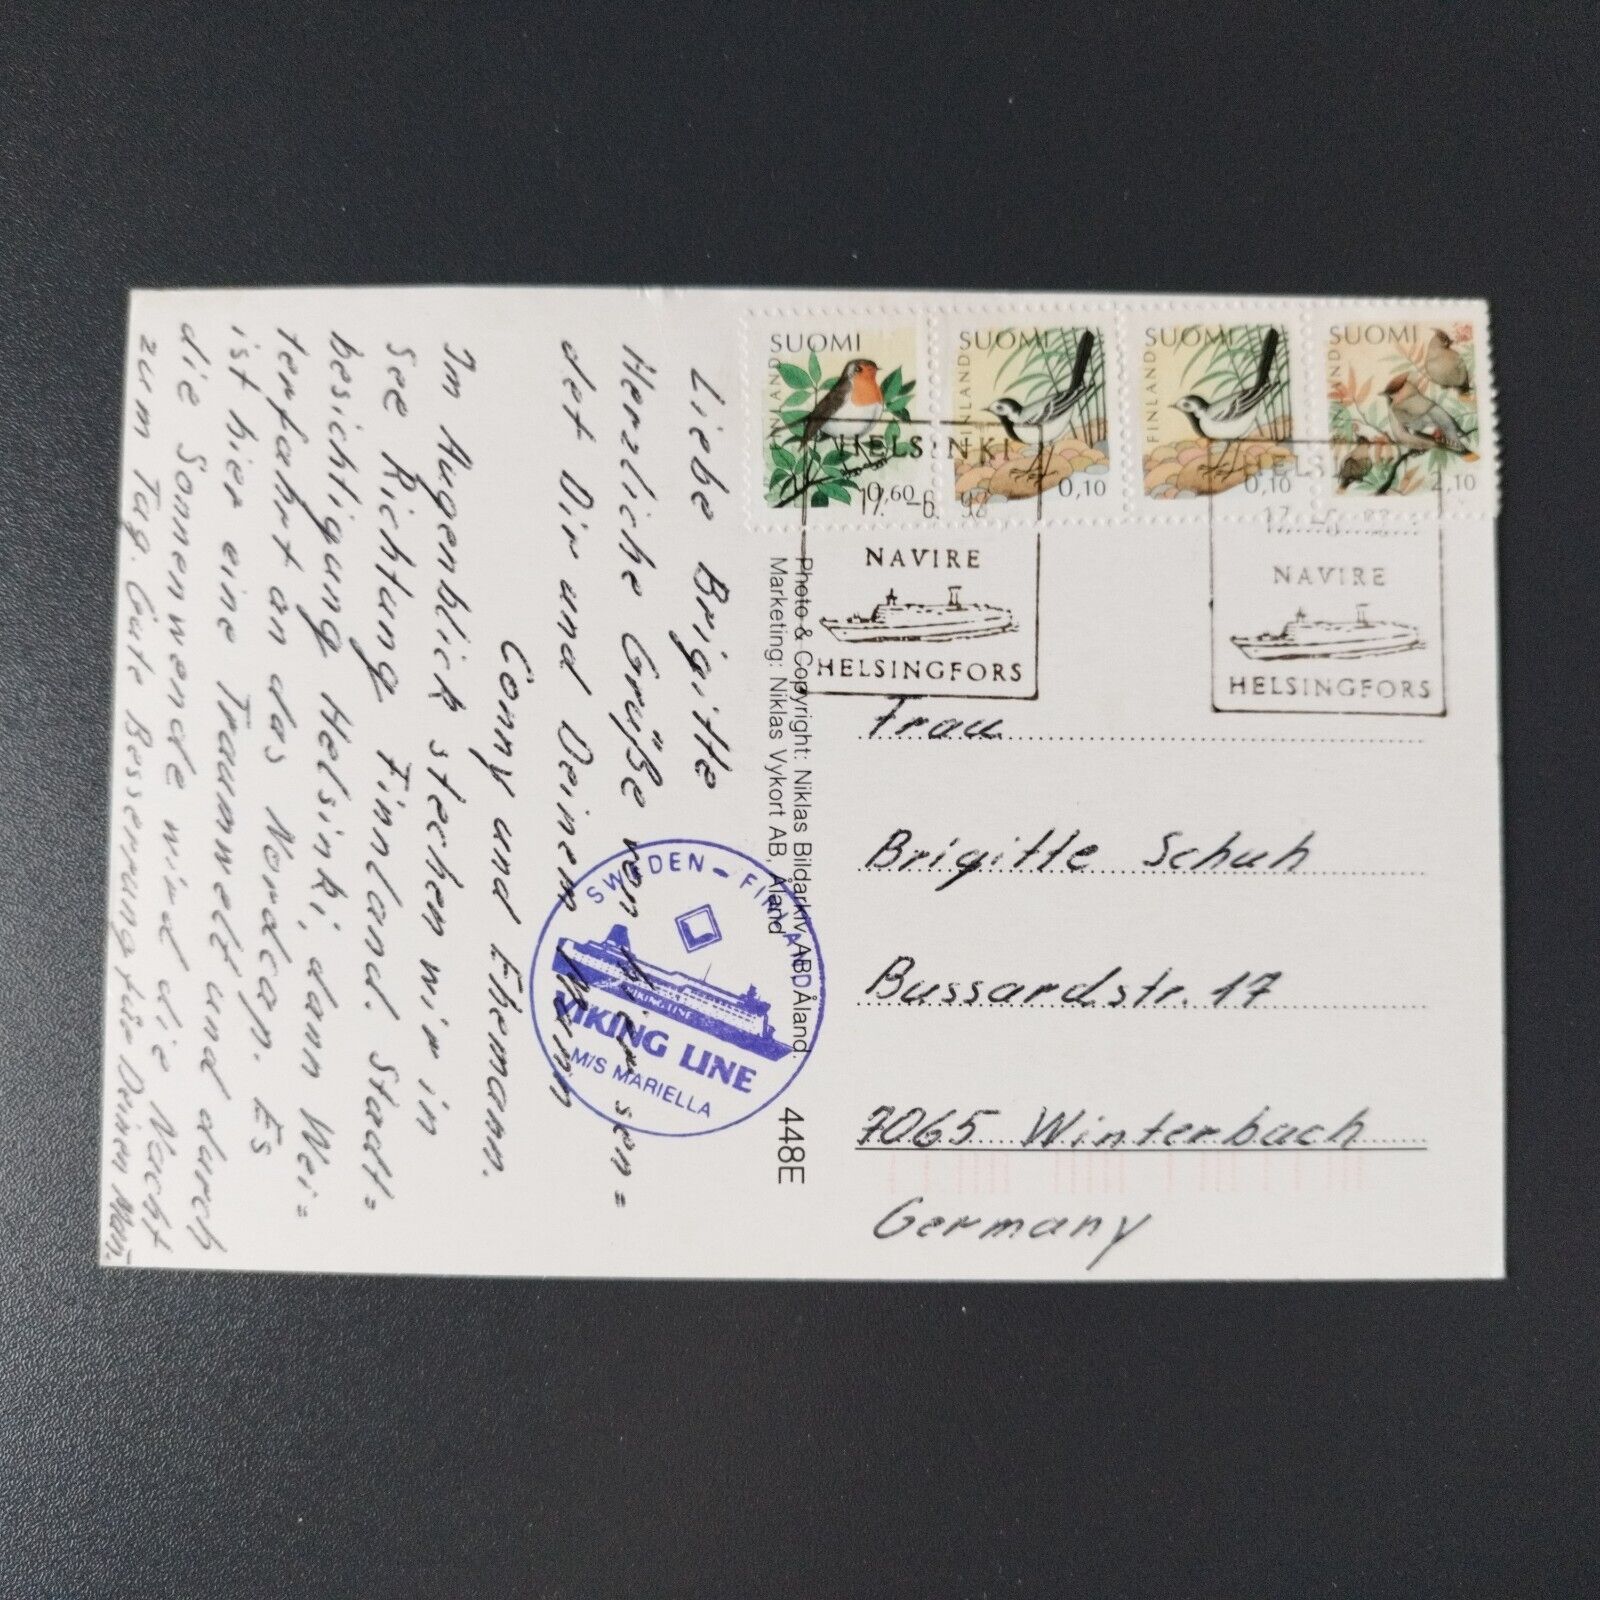 Liebe Brigitte
Herzliche Grüße von hier sen=
det Dir und Deinem Mann
Conny und Ehemann.
Im Augenblick stechen wir in
See Richtung Finnland. Stadt=
besichtigung Helsinki, dann Wei=
terfahrt an das Nordcap. Es
ist hier eine Traumwelt und durch
die Sonnenwende wird die Nacht
zum Tag. Gute Besserung für Deinen Mann.
SWEDEN - FINLAND
VIKING LINE
VIKING LINE
M/S MARIELLA
Photo & Copyright: Niklas Bildarkiv AB, Åland.
Marketing: Niklas Vykort AB, Åland
448E
SUOMI
FINLAND
0,60
SUOMI
FINLAND
0,10
SUOMI
FINLAND
0,10
SUOMI
FINLAND
2,10
HELSINKI
17.-6. 92
NAVIRE
HELSINGFORS
HELSINKI
NAVIRE
HELSINGFORS
Frau
Brigitte Schuh
Bussardstr. 17
7065 Winterbach
Germany